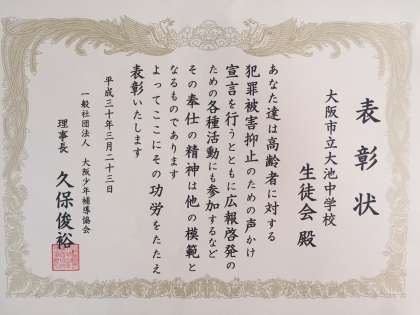 表彰状
大阪市立大池中学校
生徒会殿
あなた達は高齢者に対する
犯罪被害抑止のための声かけ
宣言を行うとともに広報啓発の
ための各種活動にも参加するなど
その奉仕の精神は他の模範と
なるものであります
よってここにその功労をたたえ
表彰いたします
平成三十年三月二十三日
一般社団法人 大阪少年補導協会
理事長 久保俊裕